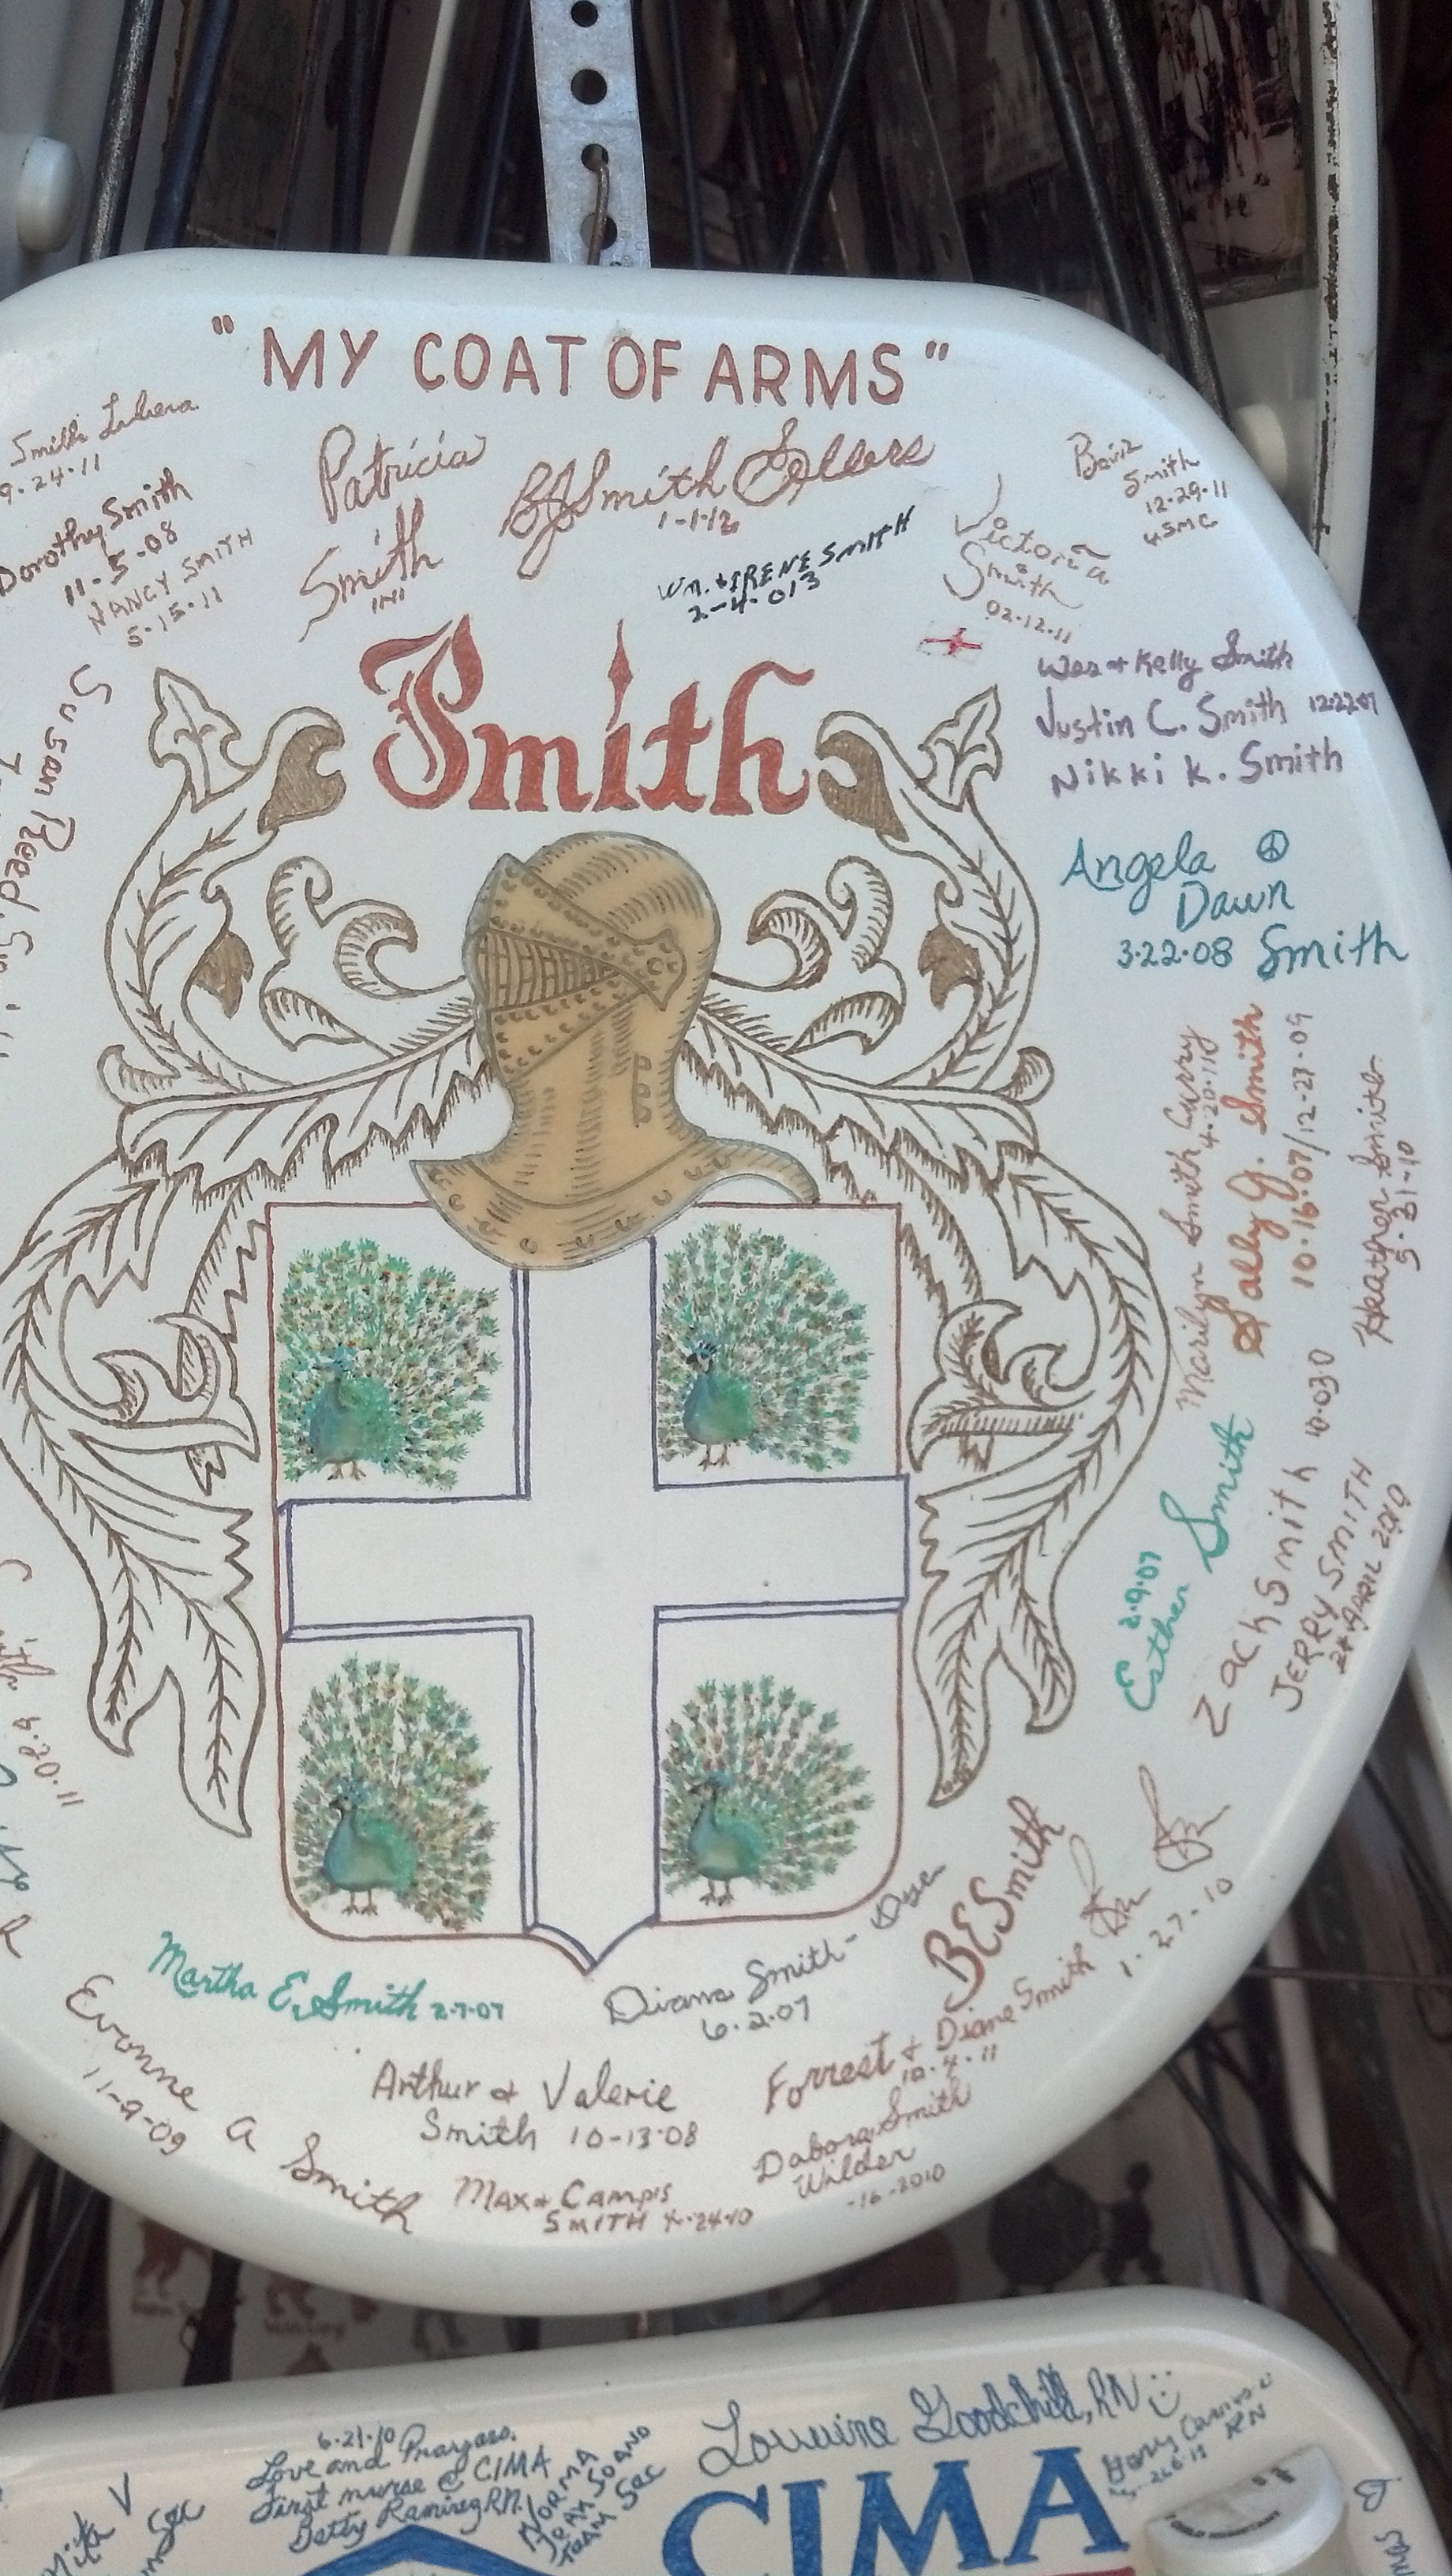 "MY COAT OF ARMS"
Smith
9.24.11
Dorothy Smith
11-5-08
NANCY SMITH
5.15.11
Patricia
Smith
BJ Smith Sellers
1-1-12
WM. & IRENE SMITH
2-4-013
Victoria
Smith
02.12.11
Smith
12.29.11
USMC
Smith
Wes & Kelly Smith
Justin C. Smith 12.22.07
Nikki K. Smith
Angela
Dawn
3.22.08 Smith
Susan Reed
Marilyn Smith Curry
4.20.11
Sally J. Smith
10.16.07/12-27-09
Heather Smith
5-31-10
2.9.07
Esther Smith
Zach Smith 10.03.0
JERRY SMITH
24 APRIL 2010
4.20.11
BESmith
1-27-10
Martha E. Smith 2.7.07
Diana Smith-Dye
6.2.07
Evonne A Smith
11-9-09
Arthur & Valerie
Smith 10-13-08
Forrest & Diane Smith
10.4.11
Dabora Smith
Wilder
-16-2010
MAX &
SMITH 4.24.10
6.21.10
Love and
First nurse @ CIMA
Betty Ramirez RN.
NORMA
TEAM SEC
Lorraine Goodchild, RN
Gary
RN
CIMA